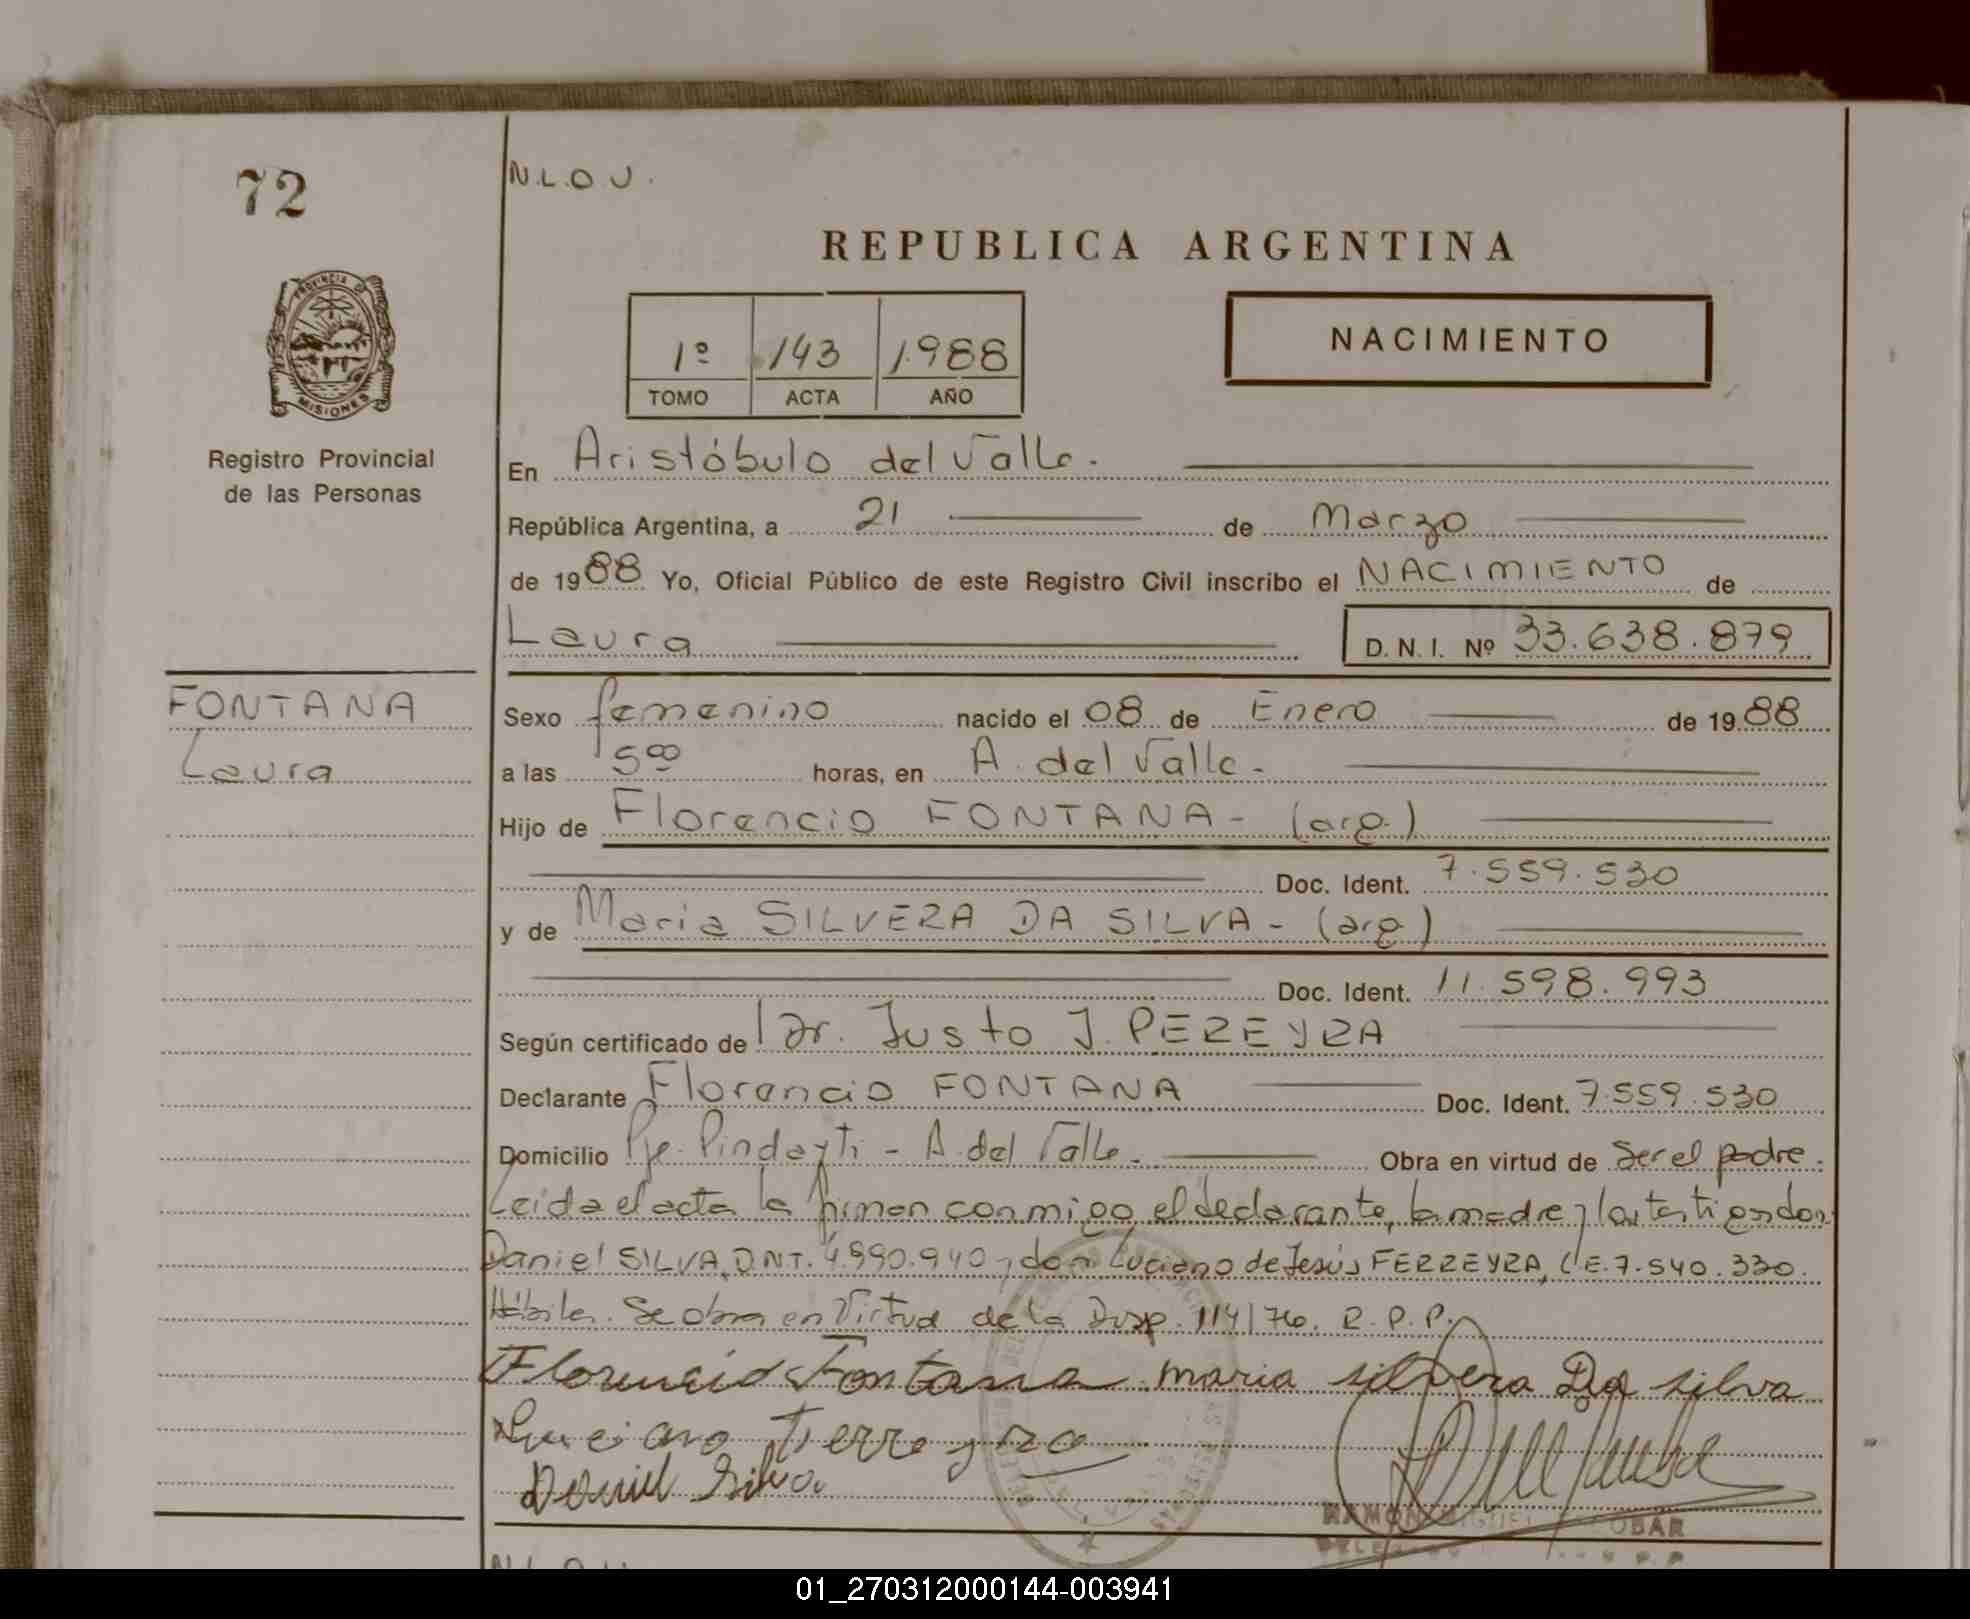 72
N.L.O.U.
REPUBLICA ARGENTINA
PROVINCIA DE
MISIONES
1º 143 1.988
TOMO ACTA AÑO
NACIMIENTO
Registro Provincial
de las Personas
En Aristóbulo del Valle.
República Argentina, a 21 de Marzo
de 1988 Yo, Oficial Público de este Registro Civil inscribo el NACIMIENTO de
Laura D.N.I. Nº 33.638.879
FONTANA
Laura
Sexo femenino nacido el 08 de Enero de 1988
a las 5 00 horas, en A. del Valle.
Hijo de Florencio FONTANA - (arg.)
Doc. Ident. 7.559.530
y de Maria SILVERA DA SILVA - (arg.)
Doc. Ident. 11.598.993
Según certificado de Dr. Justo J. PEREYRA
Declarante Florencio FONTANA Doc. Ident. 7.559.530
Domicilio Pje. Pindayti - A. del Valle. Obra en virtud de Ser el padre.
Leida el acta la firman conmigo, el declarante, la madre y los testigos don
Daniel SILVA, D.N.I. 4.990.940 y don Luciano de Jesús FERREYRA, L.E. 7.540.330.
Hábiles. Se obra en Virtud de la Disp. 114/76. R.P.P.
Florencio Fontana maria silvera Da silva
Luciano Ferreyra
Daniel Silva
RAMON MIGUEL ESCOBAR
01_270312000144-003941